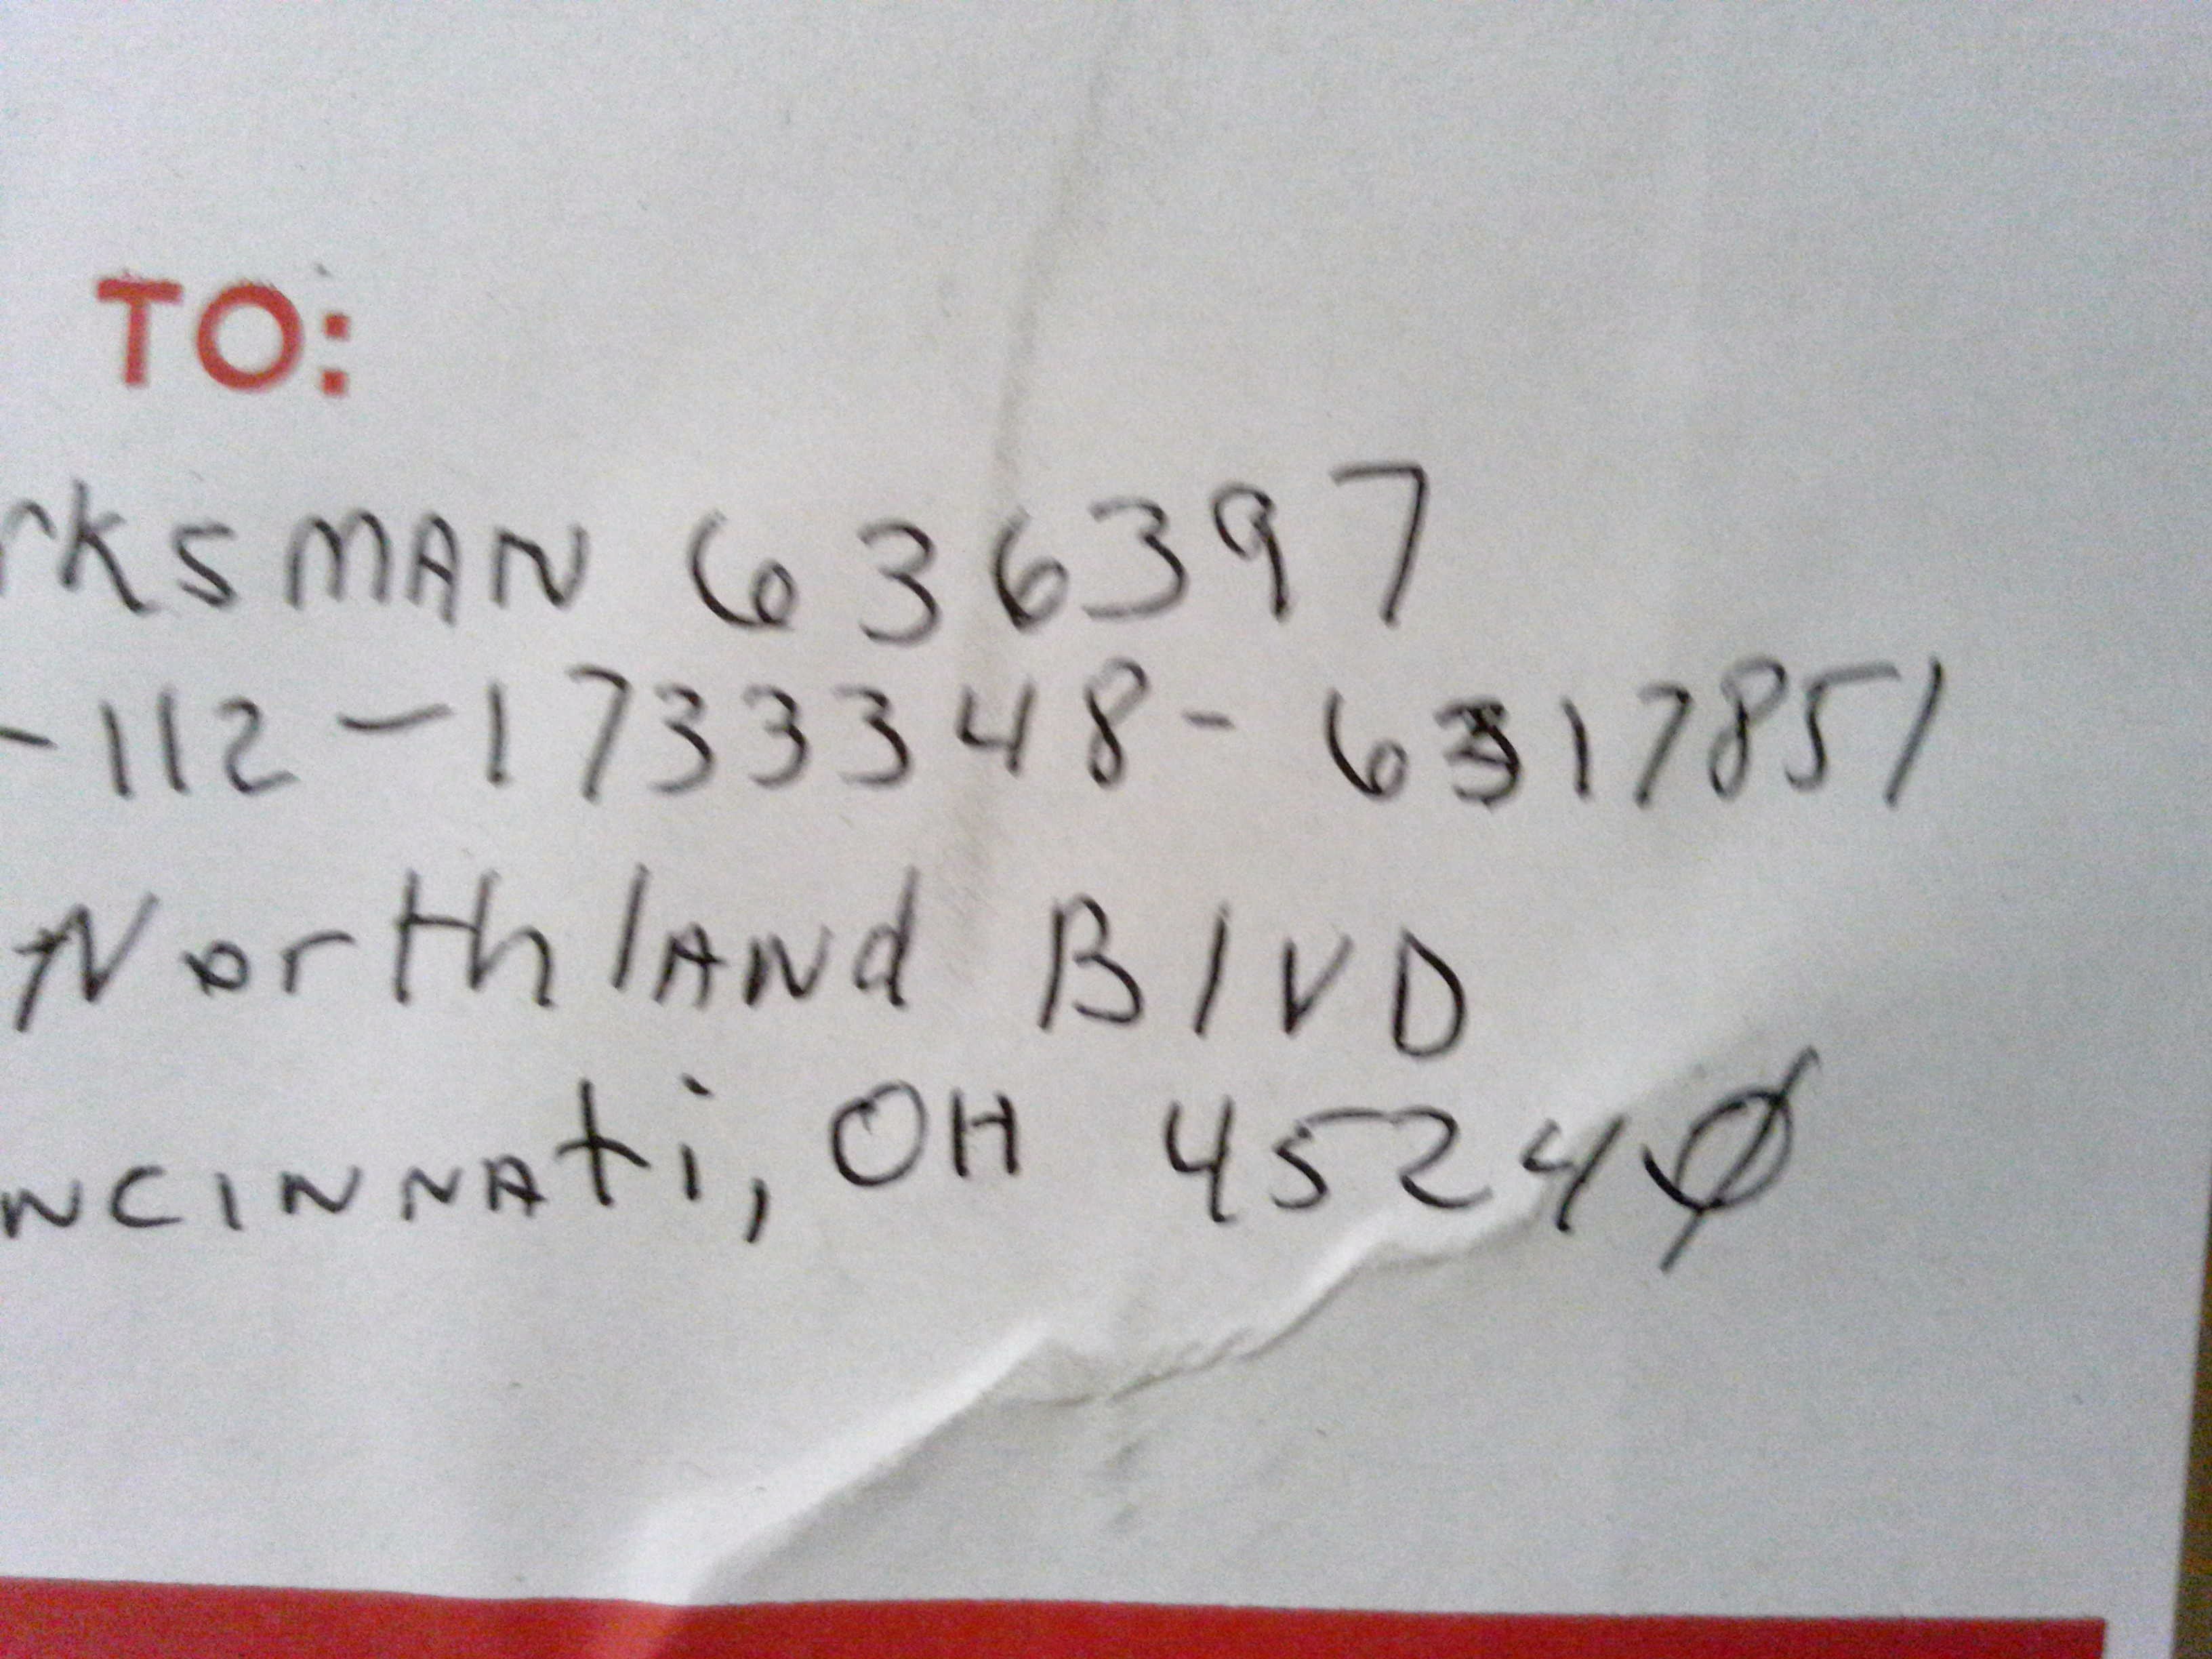 TO:
rksMAN 636397
-112-1733348-6317851
NorthlANd BlVD
NCINNAti, OH 45240